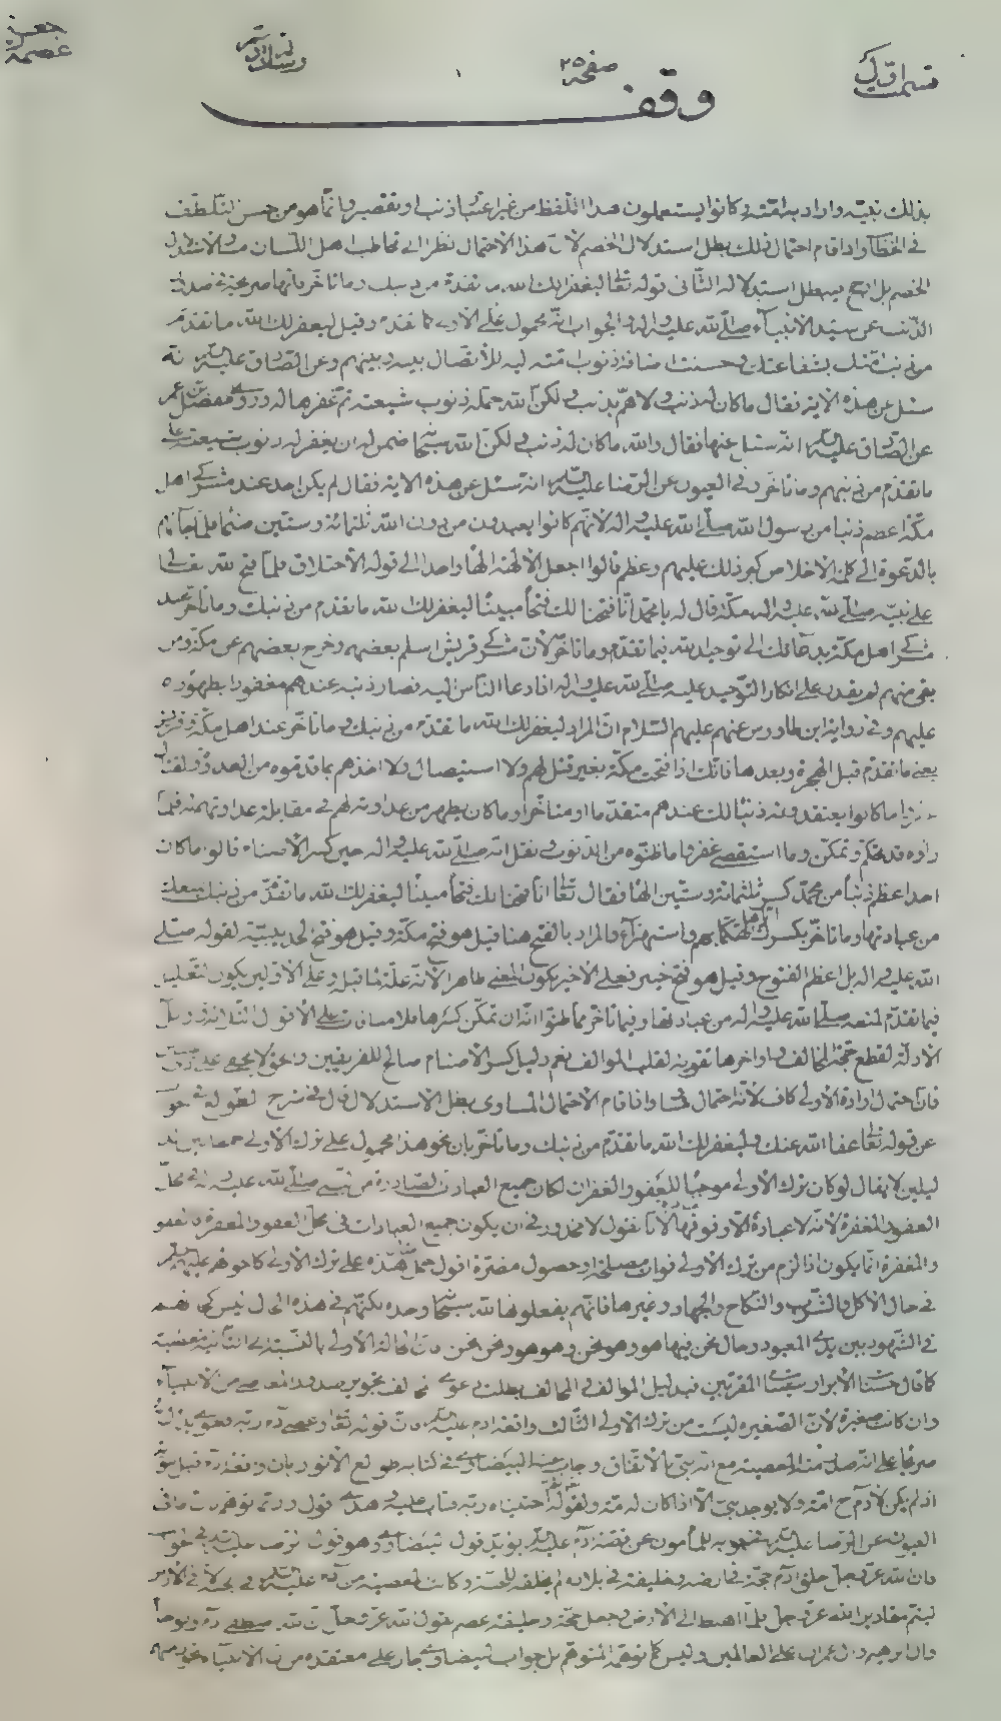 قسمت اول
صفحه ۲۵
وقف
بذلك نبيّه واراد به امّته وكانوا يستعملون هذا اللّفظ من غير اعتبار ذنب او تقصير وانّما هو من حسن التّلطّف
في الخطاب واذا قام احتمال ذلك بطل استدلال الخصم لانّ هذا الاحتمال نظرا الى تخاطب اهل اللّسان
الخصم بل ارجح استدلاله الثّاني قوله تعالى ليغفر لك الله ما تقدّم من ذنبك وما تأخّر فانّها صريحة في صدور
الذّنب عن سيّد الانبياء صلّى الله عليه واله والجواب انّه محمول على الاولى ما تقدّم وقيل ليغفر لك الله ما تقدّم
من ذنب امّتك بشفاعتك وحسنت اضافة ذنوب امّته اليه للاتّصال بينه وبينهم وعن الصّادق عليه السّلم انّه
سئل عن هذه الاية فقال ما كان له ذنب ولا همّ بذنب ولكنّ الله حمله ذنوب شيعته ثم غفرها له وروى مفضّل بن عمر
عن الصّادق عليه السّلم انّه سئل عنها فقال والله ما كان له ذنب ولكنّ الله سبحانه ضمن له ان يغفر له ذنوب شيعة علي
ما تقدّم من ذنبهم وما تأخّر وفي العيون عن الرّضا عليه السّلم انّه سئل عن هذه الاية فقال لم يكن احد عند مشركي اهل
مكّة اعظم ذنبا من رسول الله صلّى الله عليه واله لانّهم كانوا يعبدون من دون الله ثلثمائة وستّين صنما فلمّا جائهم
بالدّعوة الى كلمة الاخلاص كبر ذلك عليهم وعظم قالوا اجعل الالهة الها واحدا الى قوله الّا اختلاق فلمّا فتح الله تعالى
على نبيّه صلّى الله عليه واله مكّة قال له يا محمّد انّا فتحنا لك فتحا مبينا ليغفر لك الله ما تقدّم من ذنبك وما تأخّر عند
مشركي اهل مكّة بدعائك الى توحيد الله فيما تقدّم وما تأخّر لانّ مشركي قريش اسلم بعضهم وخرج بعضهم عن مكّة ومن
بقي منهم لم يقدر على انكار التّوحيد عليه صلّى الله عليه واله اذا دعا النّاس اليه فصار ذنبه عندهم مغفورا بظهوره
عليهم وفي رواية ابن طاووس عنهم عليهم السّلام انّ المراد ليغفر لك الله ما تقدّم من ذنبك وما تأخّر عند اهل مكّة وقريش
يعني ما تقدّم قبل الهجرة وبعدها فانّك اذا فتحت مكّة بغير قتل لهم ولا استيصال ولا اخذهم بما قدّموه من العداوة والقتال
ما كانوا يعتقدونه ذنبا لك عندهم متقدّما او متأخّرا وما كان يظهر من عداوته لهم في مقابلة عداوتهم له فلمّا
راوه قد تحكّم وتمكّن وما استقصى غفروا ما ظنّوه من الذّنوب ونقل انّه صلّى الله عليه واله حين كسر الاصنام قالوا ما كان
احد اعظم ذنبا من محمّد كسر ثلثمائة وستّين الها فقال تعالى انّا فتحنا لك فتحا مبينا ليغفر لك الله ما تقدّم من ذنبك
من عبادتها وما تأخّر بكسرك تهكّما بهم واستهزاء والمراد بالفتح هنا قيل هو فتح مكّة وقيل هو فتح الحديبيّة لقوله صلّى
الله عليه واله بل اعظم الفتوح وقيل هو فتح خيبر فعلى الاخير يكون المعنى ظاهرا لانّه علّة لما قبله وعلى الاوّلين يكون التّعليل
فيما تقدّم لمنعه صلّى الله عليه واله من عبادتها وفيما تأخّر مما ظنّوا انّه ان تمكّن كسرها فلا منافات على الاقوال الثّلاثة
الادلّة لقطع حجّة المخالف واخرها تقوية لقلب الموالف نعم دليل كسر الاصنام صالح للفريقين والحق لا يخفى على
فانّ احتمال ارادة الاولى كاف لانّه احتمال مساو واذا قام الاحتمال المساوي بطل الاستدلال قال في شرح
عن قوله تعالى عفا الله عنك وليغفر لك الله ما تقدّم من ذنبك وما تأخّر بان نحو هذا محمول على ترك الاولى جمعا بين
الدليلين لا يقال لو كان ترك الاولى موجبا للعفو والغفران لكان جميع العبادات الصّادرة من نبيّ صلّى الله عليه واله في محلّ
العفو والمغفرة لانّه لا عبادة الّا وفوقها لانّا نقول لا محذور في ان يكون جميع العبادات في محلّ العفو والمغفرة والعفو
والمغفرة انّما يكون اذا لزم من ترك الاولى فوات مصلحة او حصول مضرّة اقول حمل هذه على ترك الاولى كاحوالهم عليهم السّلم
في حال الاكل والشّرب والنّكاح والجهاد وغيرها فانّهم يفعلونها لله سبحانه وحده لكنّهم في هذه الحال ليس كحالهم
في الشّهود بين يدي المعبود وحال نحن فيها هو وهو نحن وهو هو ونحن نحن فانّ الحالة الاولى بالنّسبة الى الثّانية معصية
كما قال حسنات الابرار سيّئات المقرّبين فبدليل الموالف والمخالف بطلت دعوى المخالف بتجويز صدور المعاصي من الانبياء
وان كانت صغيرة لانّ الصّغيرة ليست من ترك الاولى الثّالث واقعة ادم عليه السّلم فانّ قوله تعالى وعصى آدم ربّه فغوى يدلّ
صريحا على انّه صدر منه المعصية مع انّه نبيّ بالاتّفاق واجاب عنه البيضاوي في كتابه طوالع الانوار بان واقعة ادم قبل نبوّته
اذ لم يكن لادم ح امّة ولا يوجد نبيّ الّا اذا كان له امّة ولقوله ثمّ اجتباه ربّه فتاب عليه وهدى اقول وربّما توهّم انّ ما في
العيون عن الرّضا عليه السّلم في جوابه للمأمون عن قصّة ادم عليه السّلم يؤيّد قول البيضاوي وهو قول الرّضا عليه السّلم في جوابه
فانّ الله عزّ وجلّ خلق ادم حجّة في ارضه وخليفة في بلاده لم يخلقه للجنّة وكانت المعصية من ادم عليه السّلم في الجنّة لا في الارض
ليتمّ مقادير الله عزّ وجلّ فلمّا اهبط الى الارض وجعل حجّة وخليفة عصم بقول الله عزّ وجلّ انّ الله اصطفى ادم ونوحا
وال ابرهيم وال عمران على العالمين وليس كما توهّمه المتوهّم بل جواب البيضاوي جار على معتقده من انّ الانبياء